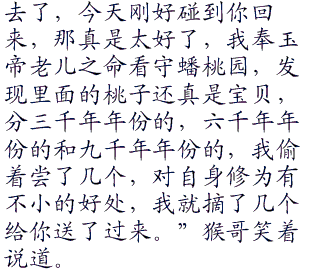 去了，今天刚好碰到你回
来，那真是太好了，我奉玉
帝老儿之命看守蟠桃园，发
现里面的桃子还真是宝贝，
分三千年年份的，六千年年
份的和九千年年份的，我偷
着尝了几个，对自身修为有
不小的好处，我就摘了几个
给你送了过来。”猴哥笑着
说道。